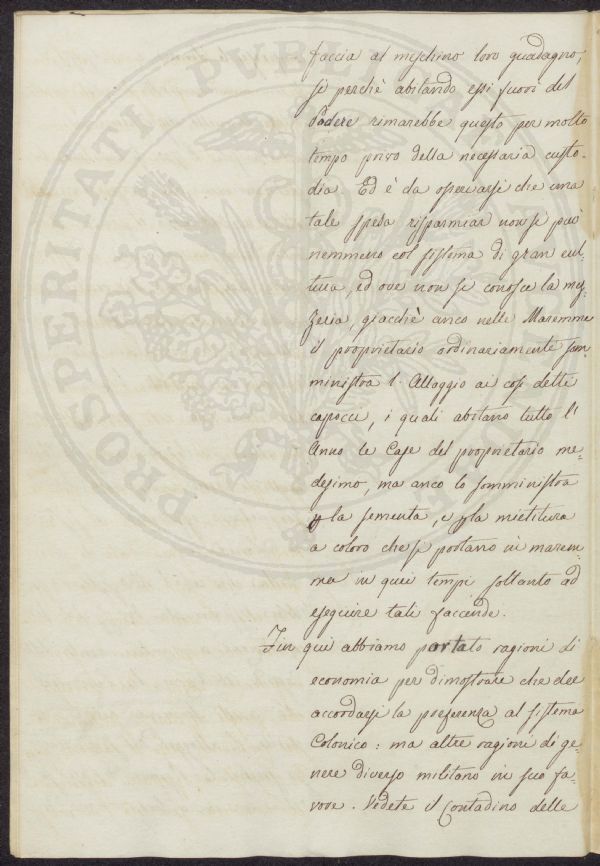 faccia al meschino loro guadagno,
sì perchè abitando essi fuori del
Podere rimarebbe questo per molto
tempo privo della necessaria custo-
dia. Ed è da osservarsi che una
tale spesa risparmiar non si può
nemmeno col sistema di gran cul-
tura, ed ove non si conosce la mez-
zeria, giacchè anco nelle Maremme
il proprietario ordinariamente som
ministra l'Alloggio ai così detti
capocci, i quali abitano tutto l'
Anno le Case del proprietario me-
desimo, ma anco lo somministra
p la sementa, e p la mietitura
a coloro che si portano in marem-
ma in quei tempi soltanto ad
eseguire tali faccende.
Fin qui abbiamo portato ragioni di
economia per dimostrare che dee
accordarsi la preferenza al sistema
Colonico: ma altre ragioni di ge-
nere diverso militano in suo fa-
vore. Vedete il Contadino delle
PROSPERITATI PUBLICAE